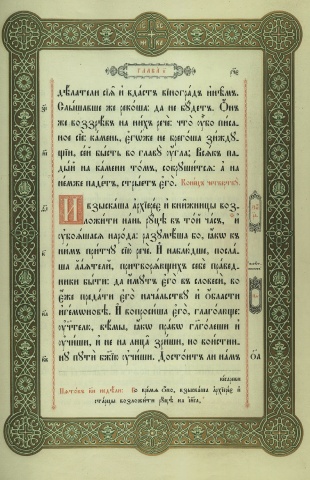 ГЛАВА К
дѣлатели сїѧ̑ и҆ вда́стъ вїногра́дъ и҆нѣ̑мъ.
Слы́шавше же реко́ша: да не бу́детъ. Ѻ҆́нъ
же воззрѣ́въ на ни́хъ речѐ: что̀ ᲂу҆̀бо писа́-
ное сїѐ: ка́мень, є҆гѡ́же не брего́ша зи́жду-
щїи, се́й бы́сть во главу̀ ᲂу҆́гла; Всѧ́къ па́-
дый на ка́мени то́мъ, сокруши́тсѧ: а҆ на
не́мже паде́тъ, стры́етъ є҆го̀. Коне́цъ четвертку̀.
И҆ взыска́ша а҆рхїере́є и҆ кни́жницы воз-
ложи́ти на́нь ру́цѣ въ то́й ча́съ, и҆
ᲂу҆боѧ́шасѧ наро́да: разꙋмѣ́ша бо, ꙗ҆́кѡ къ
ни̑мъ при́тчꙋ сїю̀ речѐ. И҆ наблю́дше, посла́-
ша лаѧ́тєли, притворѧ́ющихъ себѐ пра́вєд-
ники бы́ти: да и҆́мꙋтъ є҆го̀ въ словесѝ, во
є҆́же преда́ти є҆го̀ нача́льствꙋ и҆ ѡ҆́бласти
и҆ге́мѡновѣ. И҆ вопроси́ша є҆го̀, глаго́люще:
ᲂу҆чт҃лю, вѣ́мы, ꙗ҆́кѡ пра́вѡ глаго́леши и҆
ᲂу҆чи́ши, и҆ не на ли́ца зри́ши, но вои́стин-
нꙋ пꙋтѝ бж҃їю ᲂу҆чи́ши. Досто́итъ ли на́мъ
ке́сареви
Пѧто́къ н҃и недѣ́ли: Во вре́мѧ ѻ҆́но, взыска́ша а҆рхїере́є и҆
ста́рцы возложи́ти рꙋ́цѣ на і҆и҃са,